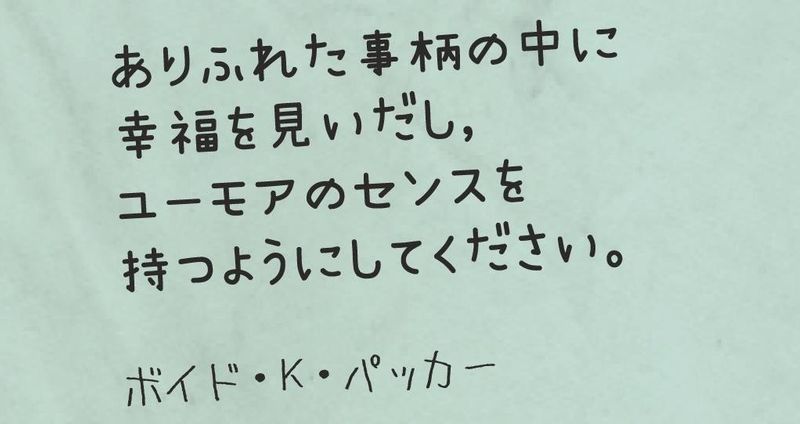 ありふれた事柄の中に
幸福を見いだし,
ユーモアのセンスを
持つようにしてください。
ボイド・K・パッカー